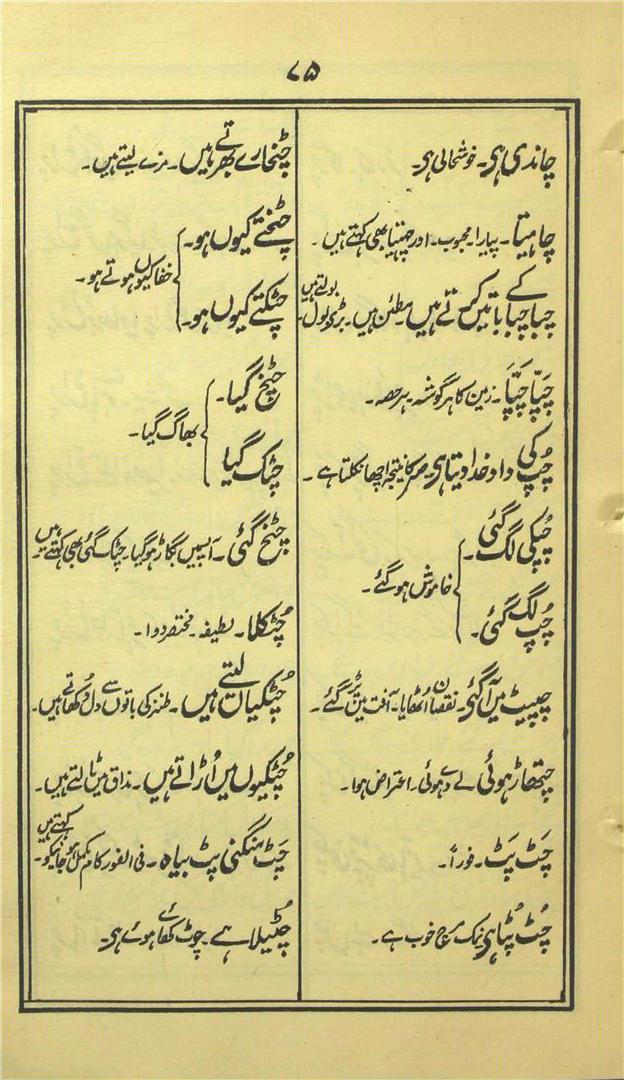 ۷۵
چاندی ہی۔ خوشحالی ہی۔
چاہیتا۔ پیارا۔ محبوب۔ اور چہیتا بھی کہتے ہیں۔
چبا چبا کے باتیں کرتے ہیں۔ مطئن ہیں۔ بڑی بول۔ بولتے ہیں
چَپّا چَپّا۔ زمین کا ہر گوشہ۔ ہر حصہ۔
چُپ کی داد خدا دیتا ہی۔ صبر کا نتیجہ اچھا نکلتا ہے۔
چُپکی لگ گئی۔
خاموش ہو گئے۔
چُپ لگ گئی۔
چپیٹ میں آ گئی۔ نقصان اُٹھایا۔ آفت میں پڑ گئے۔
چتھاڑ ہوئی لے دے ہوئی۔ اعتراض ہوا۔
چَٹ پَٹ۔ فوراً۔
چُٹ پُٹا ہی نمک مرچ خوب ہے۔
چٹخارے بھرتے ہیں۔ مزے لیتے ہیں۔
چٹختے کیوں ہو۔
خفا کیوں ہوتے ہو۔
چٹکتے کیوں ہو۔
چٹخ گیا۔
بھاگ گیا۔
چٹک گیا
چٹخ گئی۔ آپسیں بگاڑ ہو گیا۔ چٹک گئی بھی کہتے ہیں۔
چُٹکلا۔ لطیفہ۔ مختصر دوا۔
چُٹکیاں لیتے ہیں۔ طنز کی باتوں سے دل دُکھاتے ہیں۔
چُٹکیوں میں اُڑاتے ہیں۔ مذاق میں ٹالتے ہیں۔
چَٹ منگنی پٹ بیاہ۔ فی الفور کام مکمل ہو جانیکو۔ کہتے ہیں
چُٹیلا ہے۔ چوٹ کھائے ہوئے ہی۔